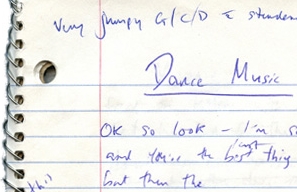 Very jumpy G/C/D
Dance Music
OK so look - I'm
and you're the best thing
just
but then the
this